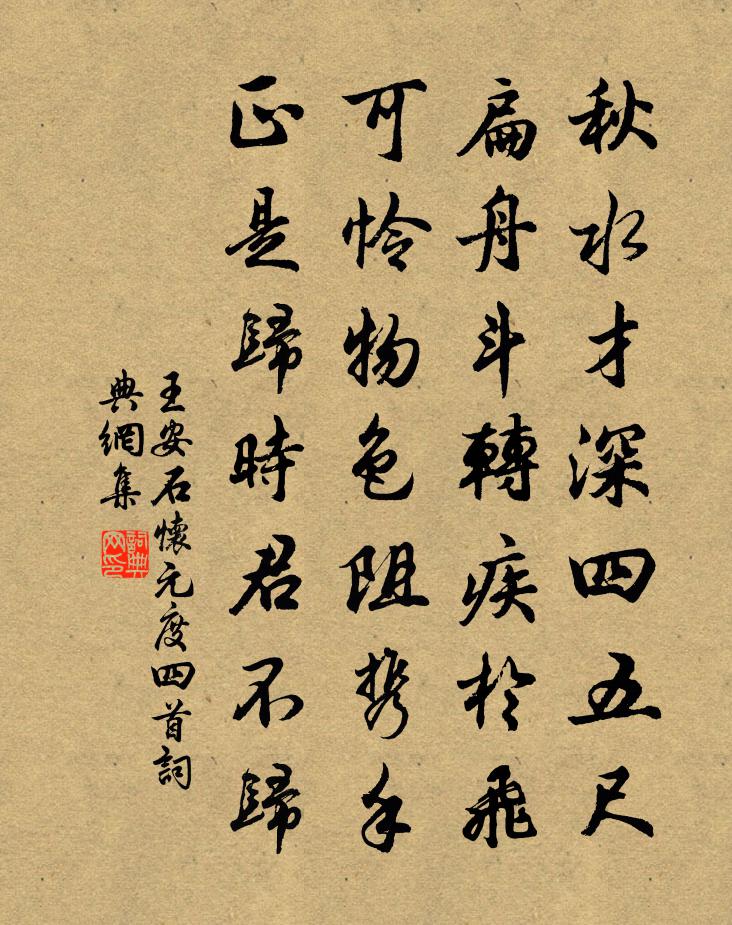 秋水才深四五尺
扁舟斗轉疾於飛
可憐物色阻携手
正是歸時君不歸
王安石懷元度四首詞
典網集
詞典
网印